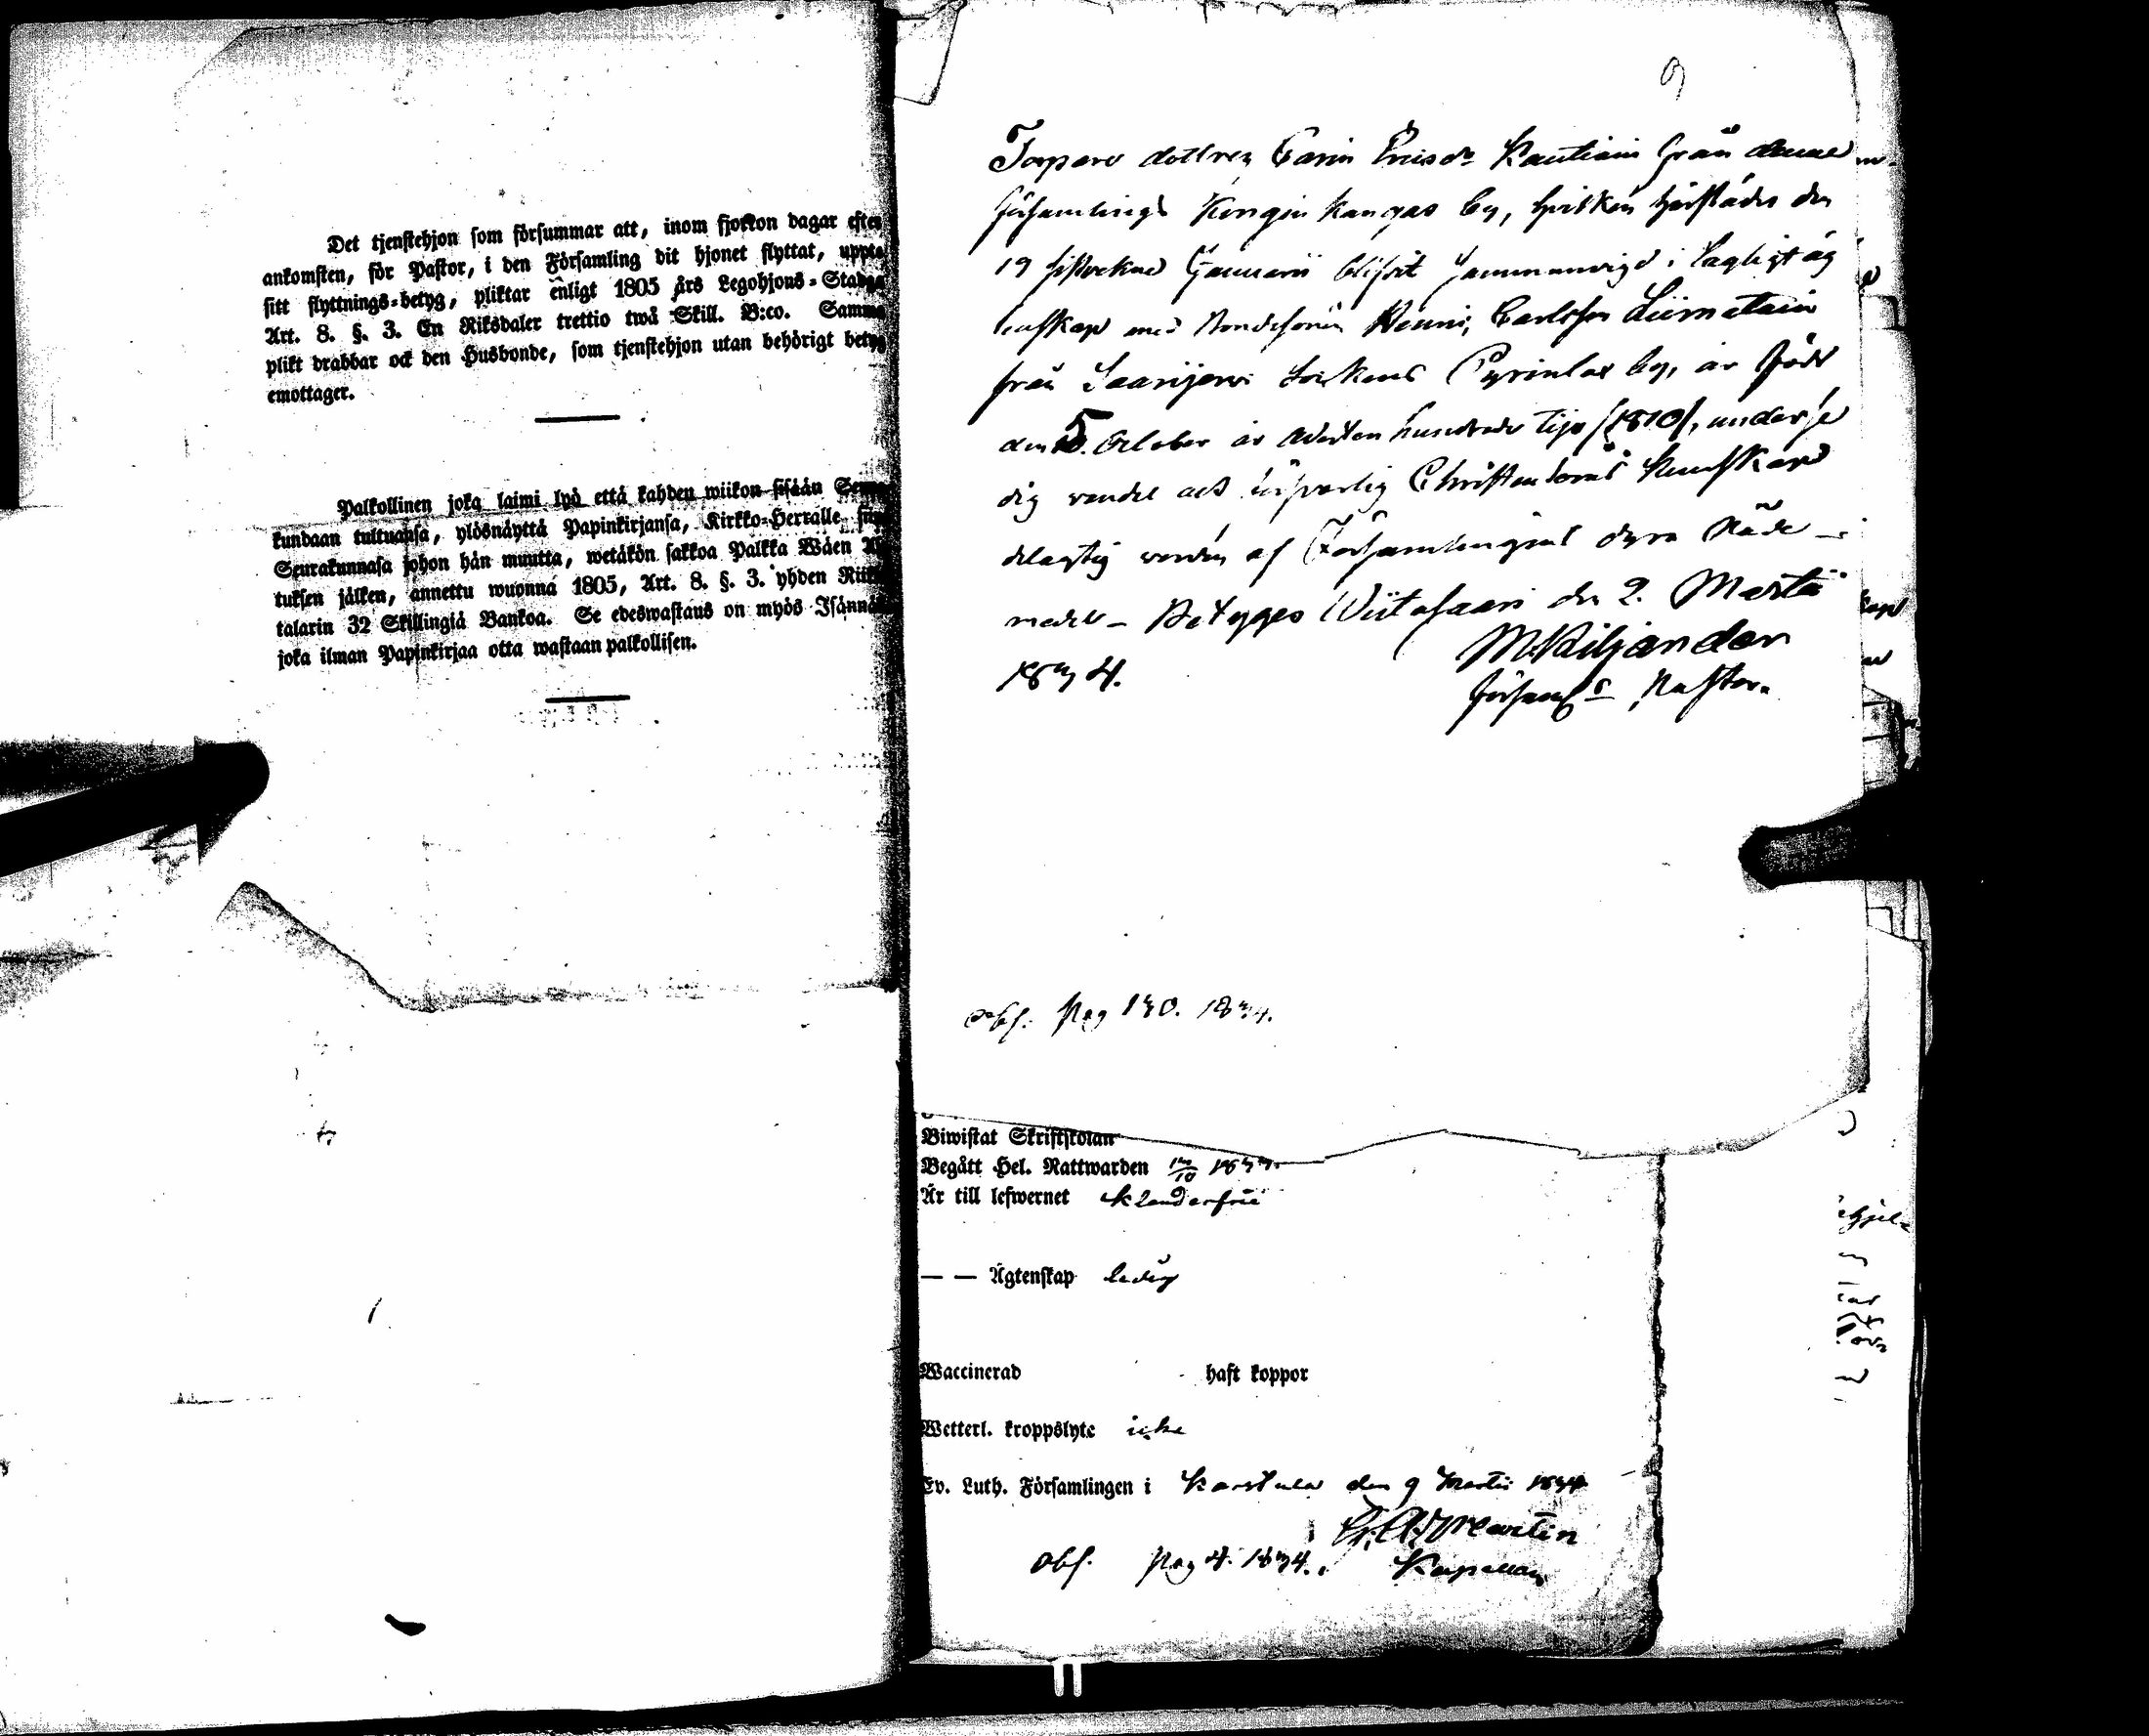 Det tjenstehjon som försummar att, inom fjorton dagar efter
ankomsten, för Pastor, i den Församling dit hjonet flyttat, uppte
sitt flyttnings-betyg, pliktar enligt 1805 års Legohjons-Stadga
Art. 8. §. 3. En Riksdaler trettio twå Skill. B:co. Samma
plikt drabbar ock den Husbonde, som tjenstehjon utan behörigt betyg
emottager.
Palkollinen joka laimi lyö että kahden wiikon sisään Seura
kundaan tultuansa, ylösnäyttä Papinkirjansa, Kirkko-Herralle
Seurakunnasa johon hän muutta, wetäkön sakkoa Palkka Wäen
tuksen jälken, annettu wuonna 1805, Art. 8. §. 3. yhden Riik
talarin 32 Skillingiä Bankoa. Se edeswastaus on myös Isännä
joka ilman Papinkirjaa otta wastaan palkollisen.
9
Torpare dottren Carin Ericsdr Kautiain från denne
församlings Kengin kangas by, hvilken härstädes den
19 sistvekne Januarii blifvit sammanvigd i lagligt äg
tenskap med Bondesonen Henric Carlsson Liimatain
från Saarijervi Sockens Pyrinlax by, är född
den 5. October år Aderton hundrade tijo /1810/, under se
dig vandel och försvarlig Christendoms kunskap
delagtig worden af Församlingens dyra Nåde
medel - Betygges Wiitasaari den 2. Martii
1834. M. Kiljander
Församls Pastor.
Obs. Pag 130. 1834.
Biwistat Skriftskolan
Begått Hel. Nattwarden 13/10 1833.
Är till lefwernet Klanderfrie
— — Ägtenskap ledig
Waccinerad haft koppor
Wetterl. kroppslyte icke
Ev. Luth. Församlingen i Karstula den 9 Martii 1834
Martin
Obs. Pag 4. 1834. Kapellan